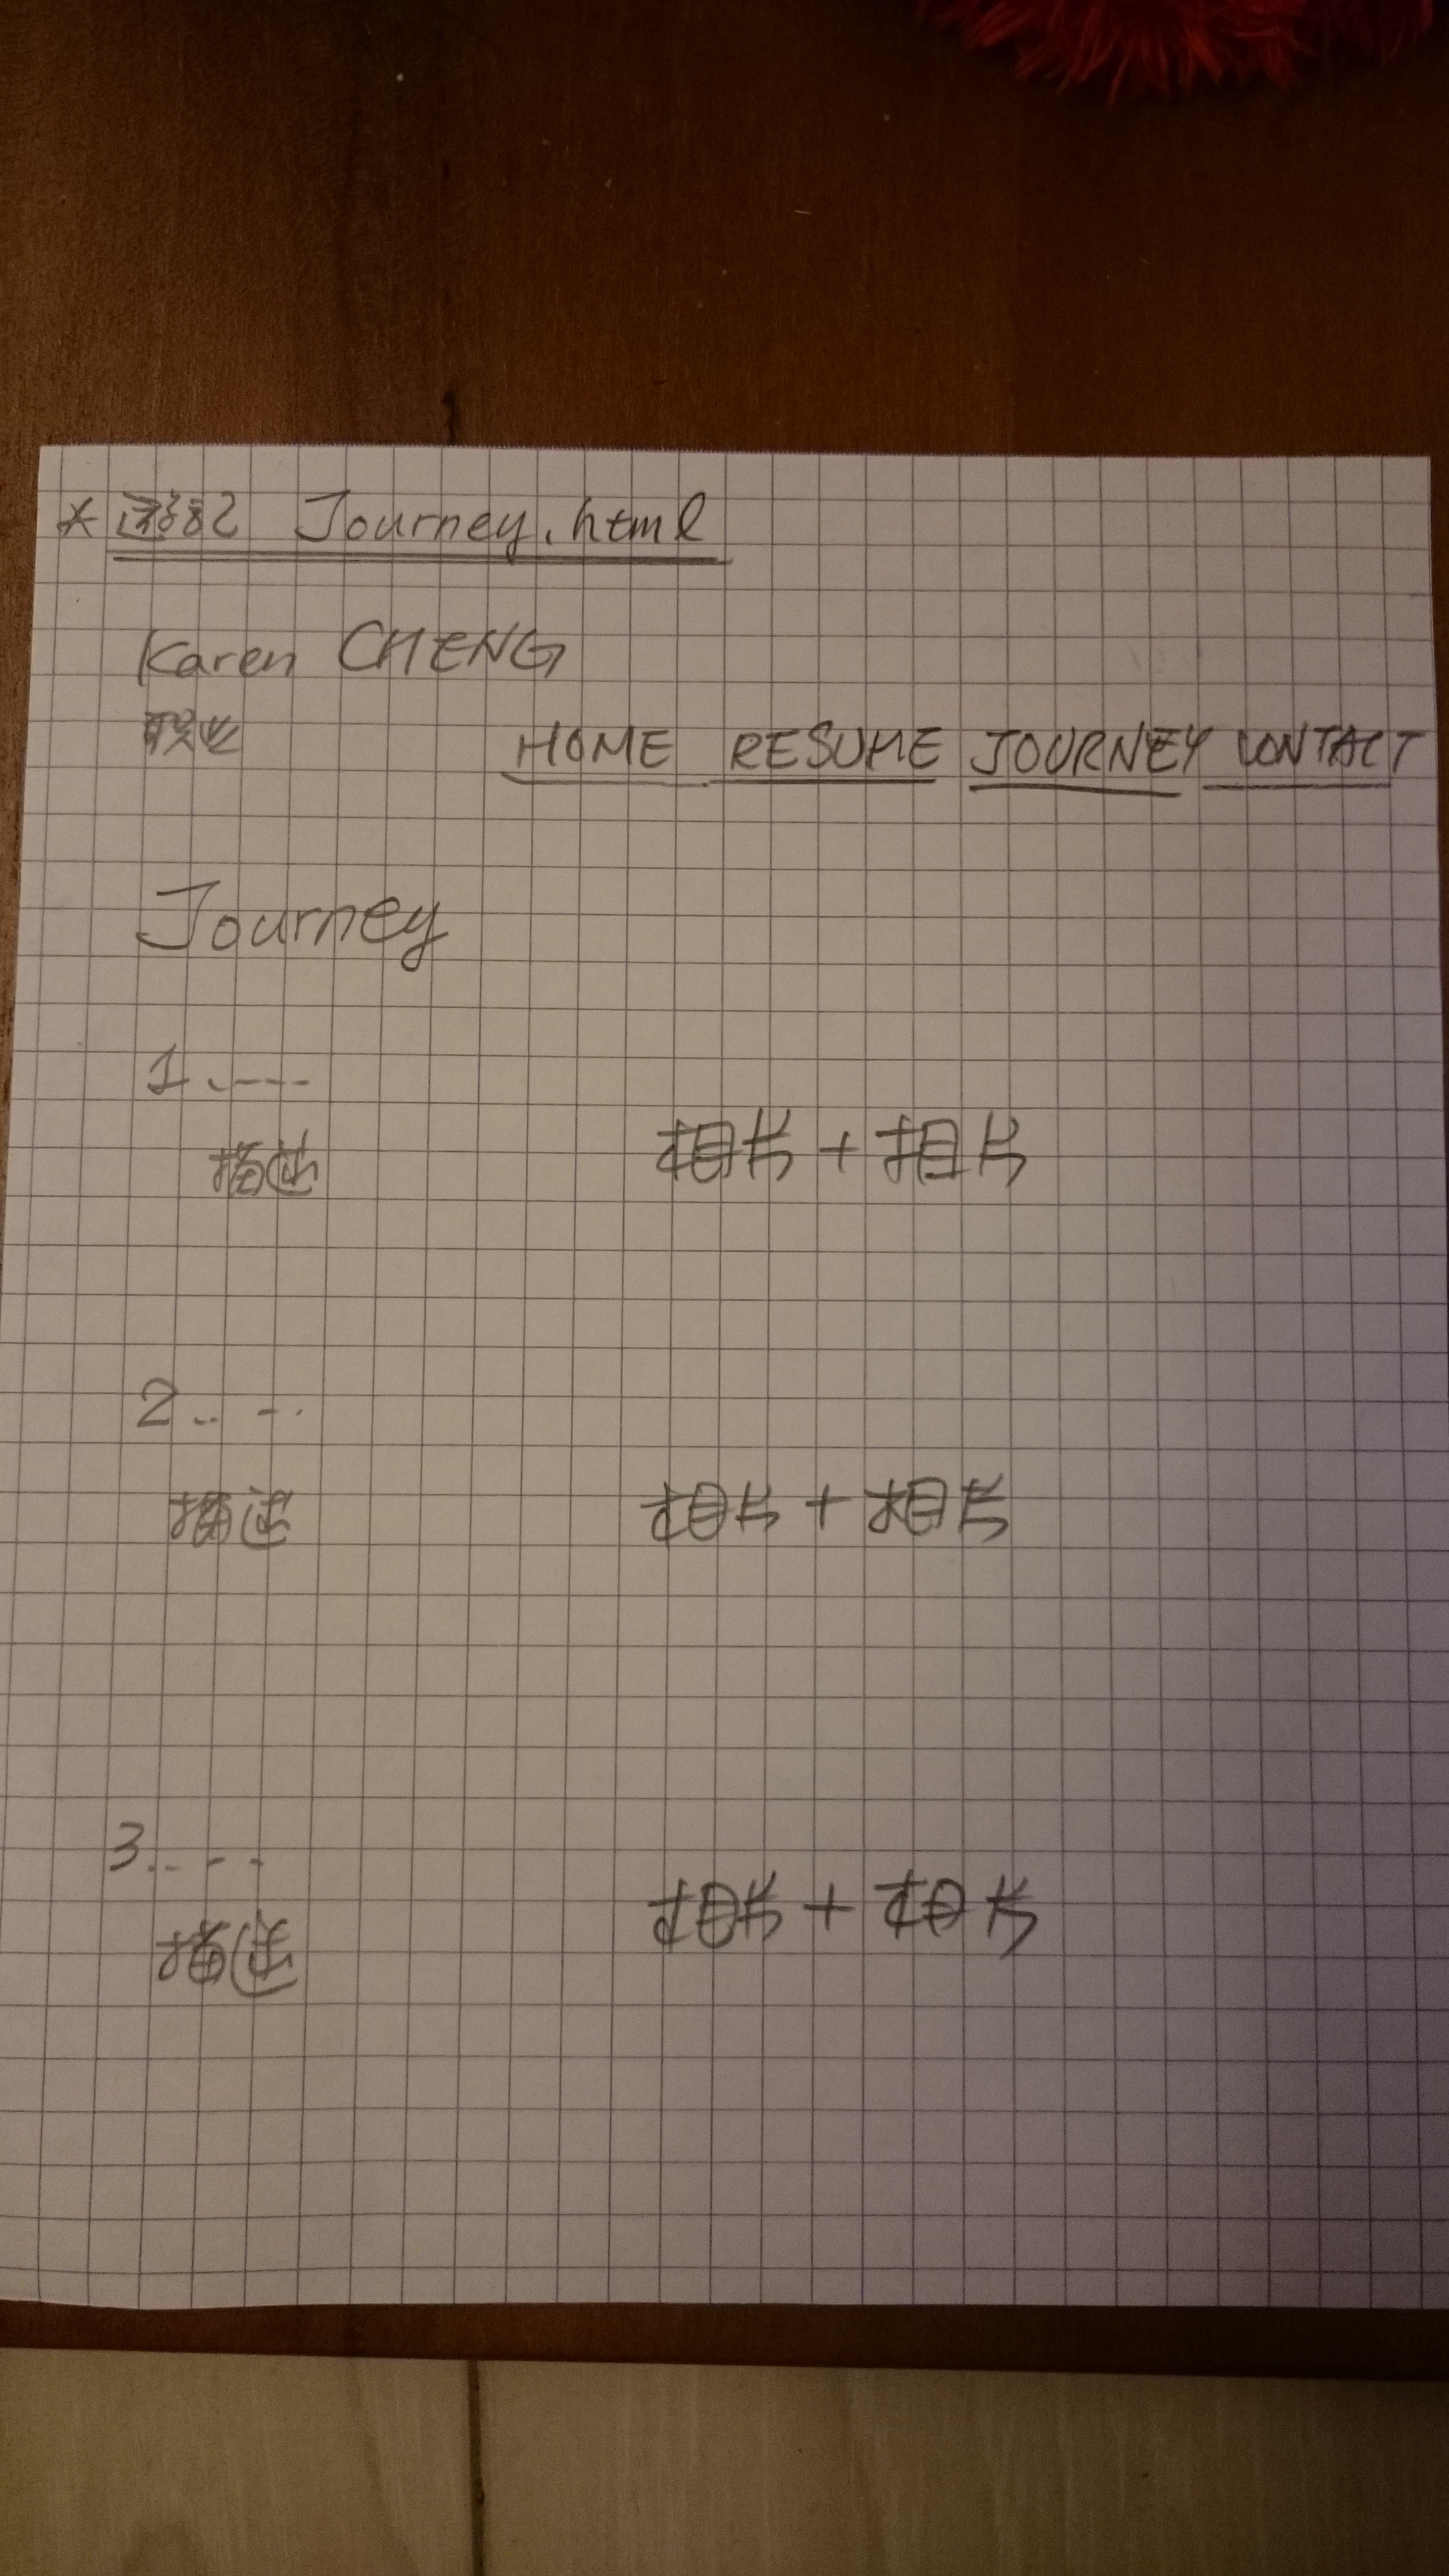 * 游记 Journey.html
Karen CHENG
职业
HOME RESUME JOURNEY CONTACT
Journey
1.----
描述 相片 + 相片
2.. -.
描述 相片 + 相片
3.. - -
描述 相片 + 相片